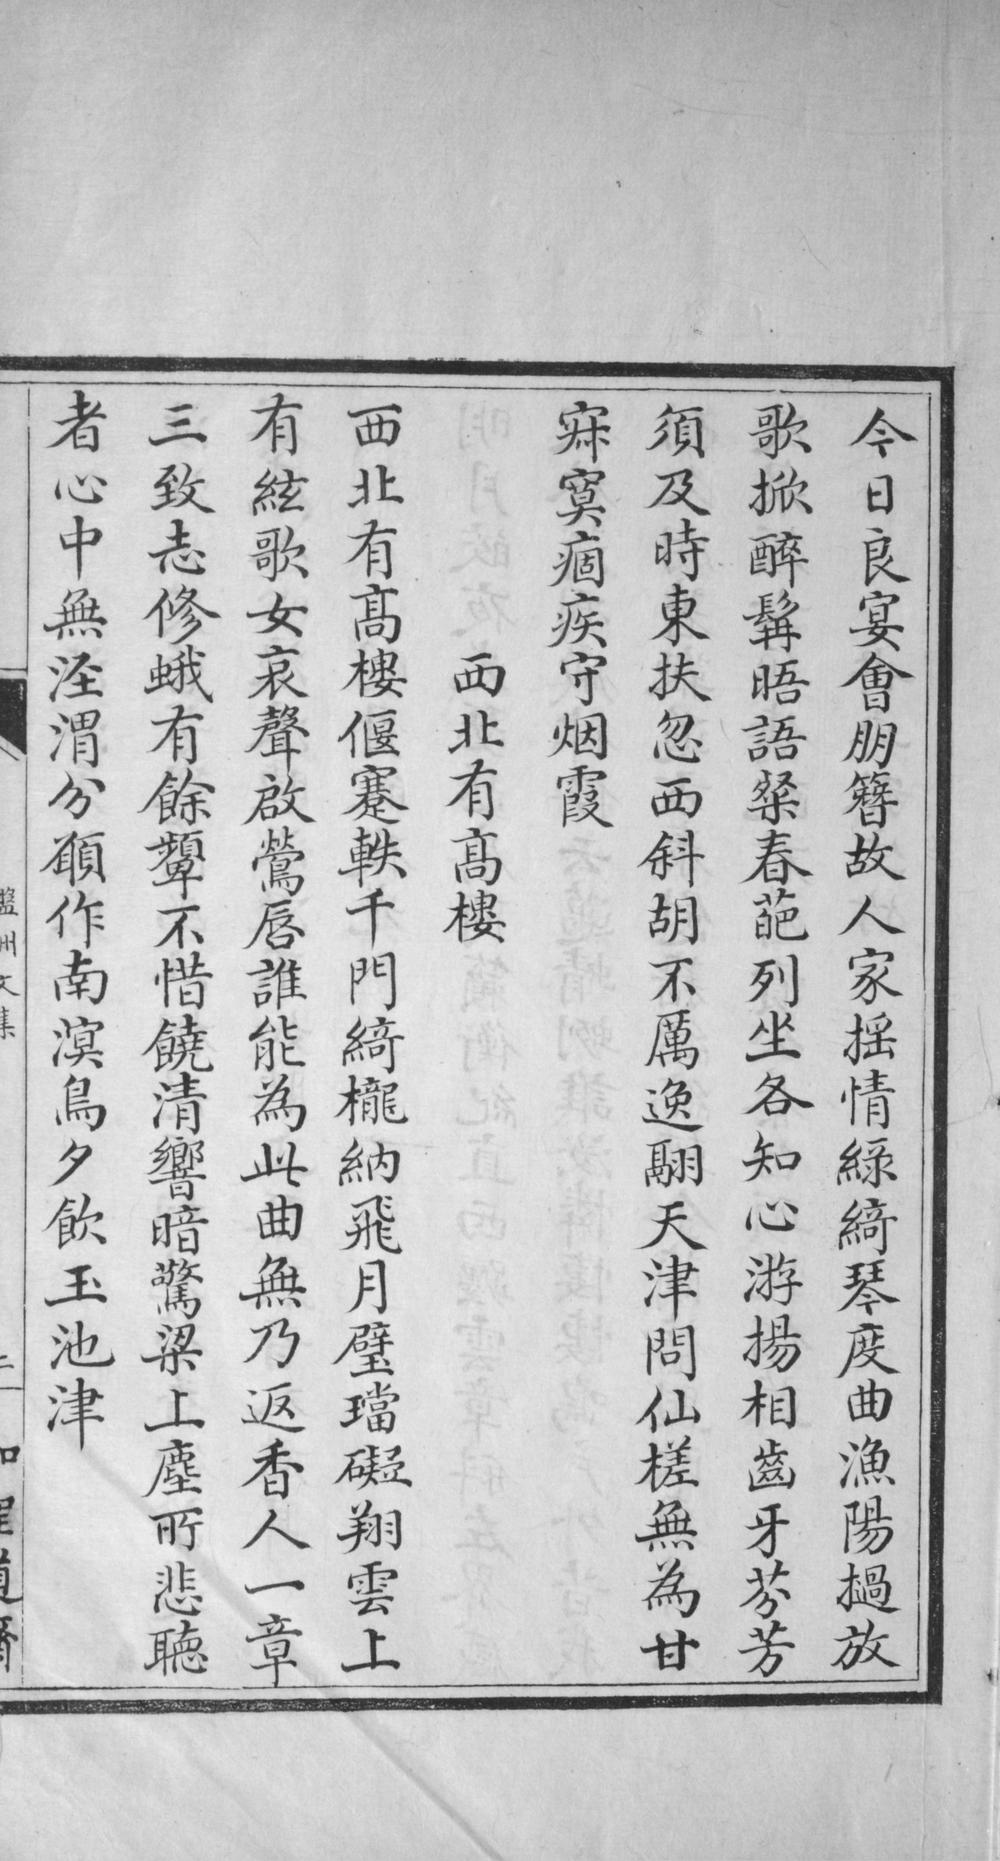 今日良宴會朋簪故人家揺情綠綺琴度曲漁陽撾放
歌掀醉髯晤語粲春葩列坐各知心游揚相齒牙芬芳
須及時東扶忽西斜胡不厲逸翮天津問仙槎無為甘
寂寞痼疾守烟霞
西北有髙樓
西北有髙樓偃蹇軼千門綺櫳納飛月璧璫礙翔雲上
有絃歌女哀聲啟鶯唇誰能為此曲無乃返香人一章
三致志修蛾有餘顰不惜饒清響暗驚梁上塵所悲聴
者心中無涇渭分願作南溟鳥夕飲玉池津
盤州文集